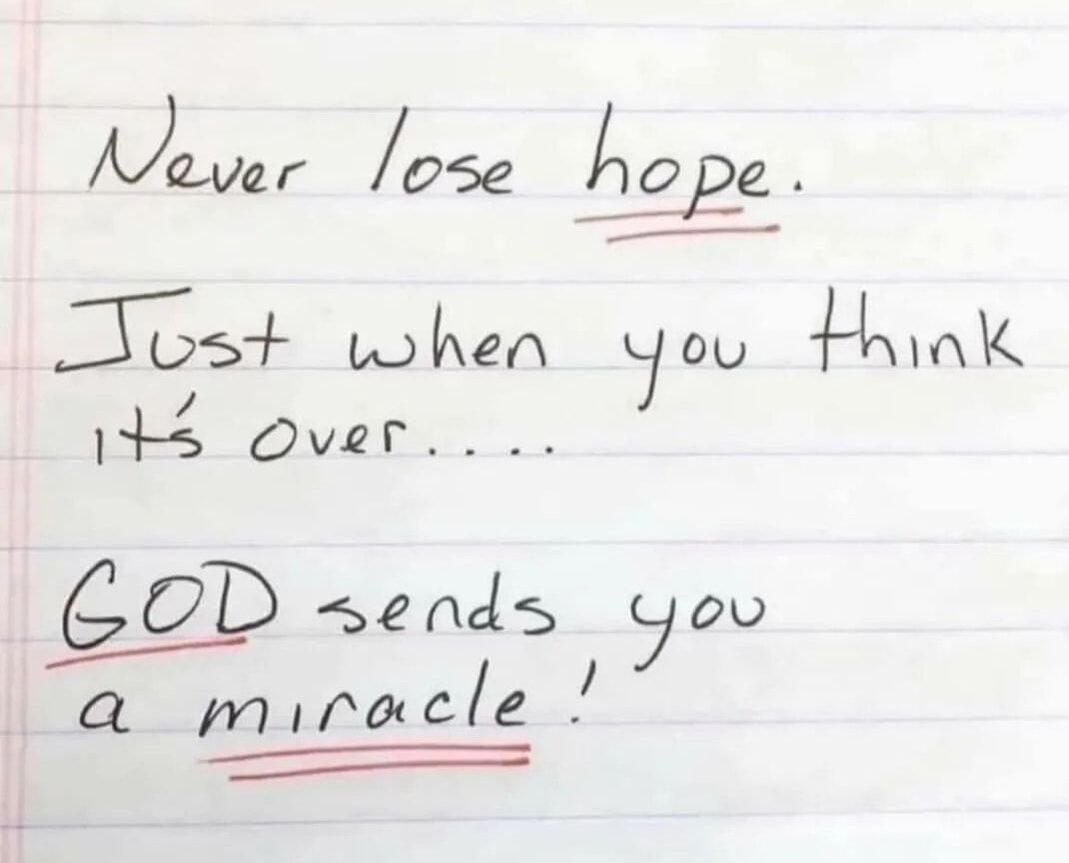 Never lose hope.
Just when you think
it's over....
GOD sends you
a miracle!